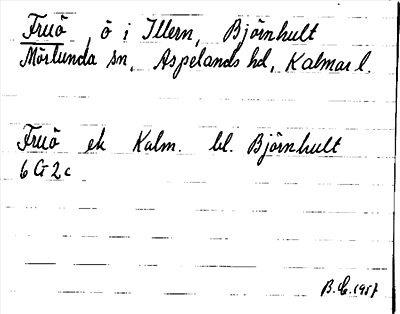 Fruö, ö i Illern, Björnhult
Mörlunda sn, Aspelands hd, Kalmar l.
Fruö ek Kalm. bl. Björnhult
6 G 2 c
B. C. 1957